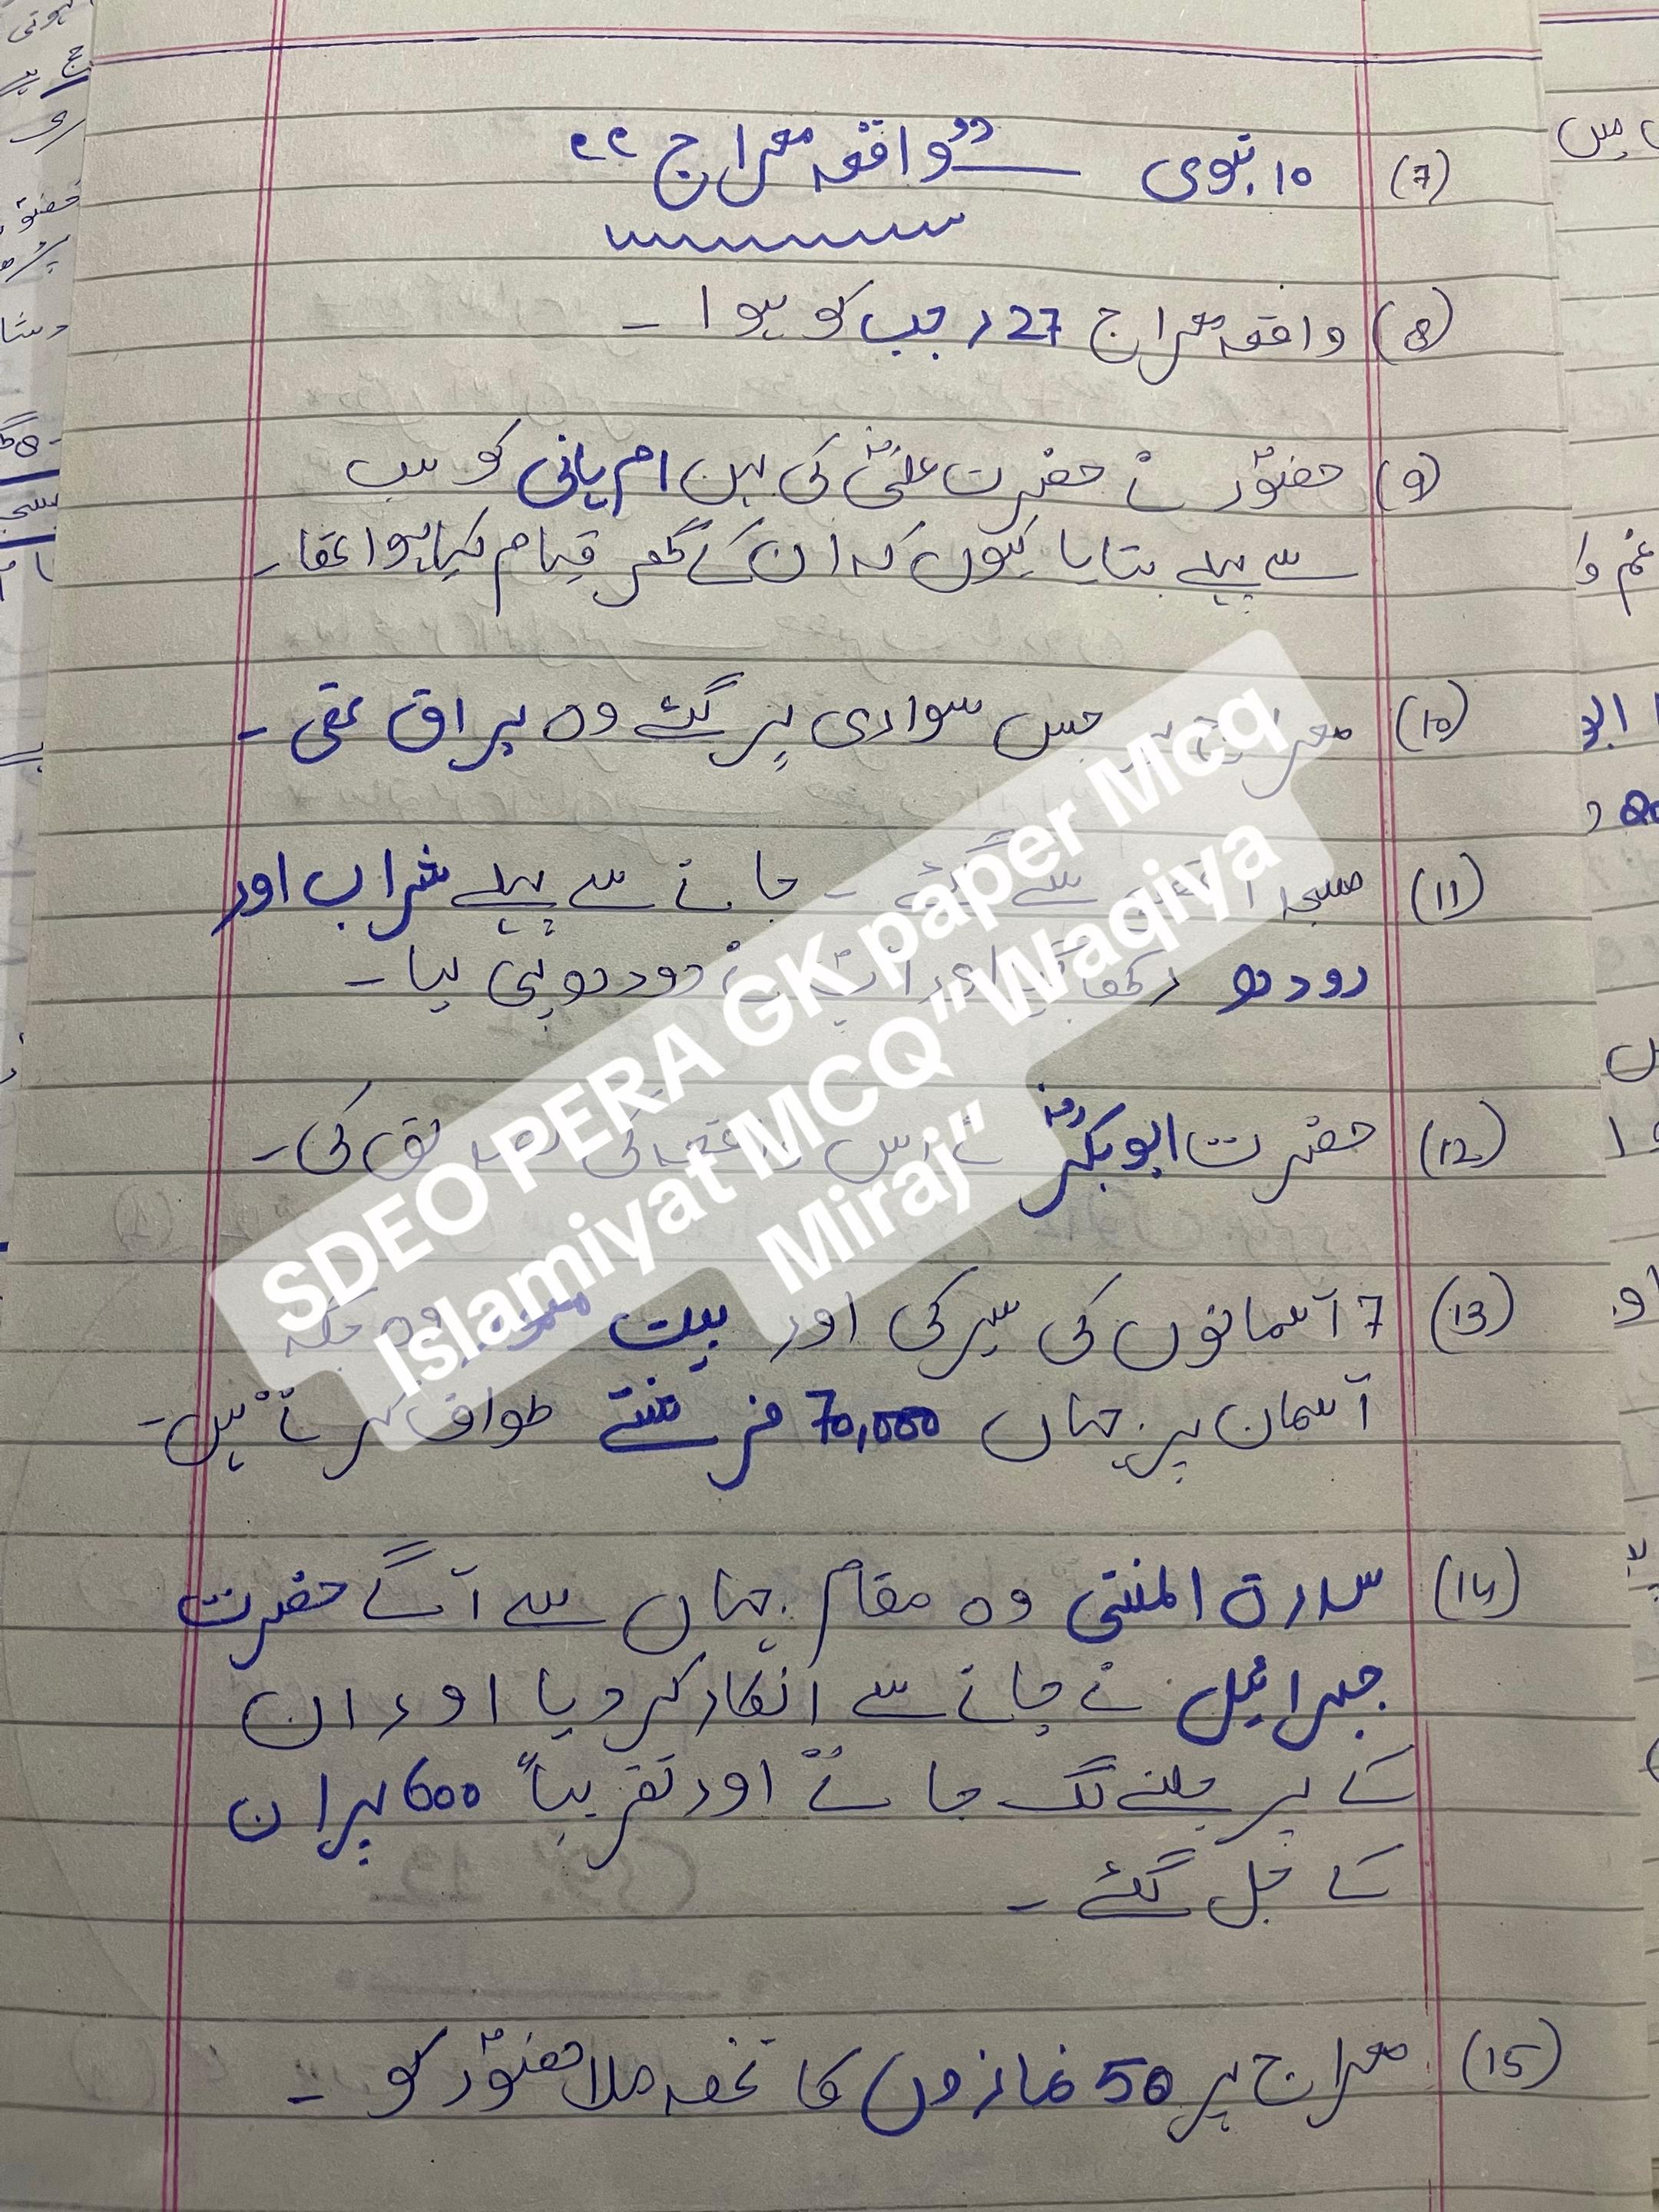 (7) 10 نبوی — "واقعہ معراج"
(8) واقعہ معراج 27 رجب کو ہوا -
(9) حضورؐ نے حضرت علیؓ کی بہن ام ہانی کو سب
سے پہلے بتایا کیوں کہ ان کے گھر قیام کیا ہوا تھا -
(10) معراج جس سواری پر گئے وہ براق تھی -
(11) مسجد سے گئے - جانے سے پہلے شراب اور
دودھ رکھا گیا اور آپؐ نے دودھ پی لیا -
(12) حضرت ابوبکرؓ نے اس واقعہ کی تصدیق کی -
(13) 7 آسمانوں کی سیر کی اور بیت معمور وہ جگہ
آسمان پر جہاں 70,000 فرشتے طواف کرتے ہیں -
(14) سدرۃ المنتہی وہ مقام جہاں سے آگے حضرت
جبرائیل نے جانے سے انکار کر دیا اور ان
کے پر جلنے لگ جاتے اور تقریباً 600 پر ان
کے جل گئے -
(15) معراج پر 50 نمازوں کا تحفہ ملا حضورؐ کو -
SDEO PERA GK paper Mcq
Islamiyat MCQ "Waqiya
Miraj"